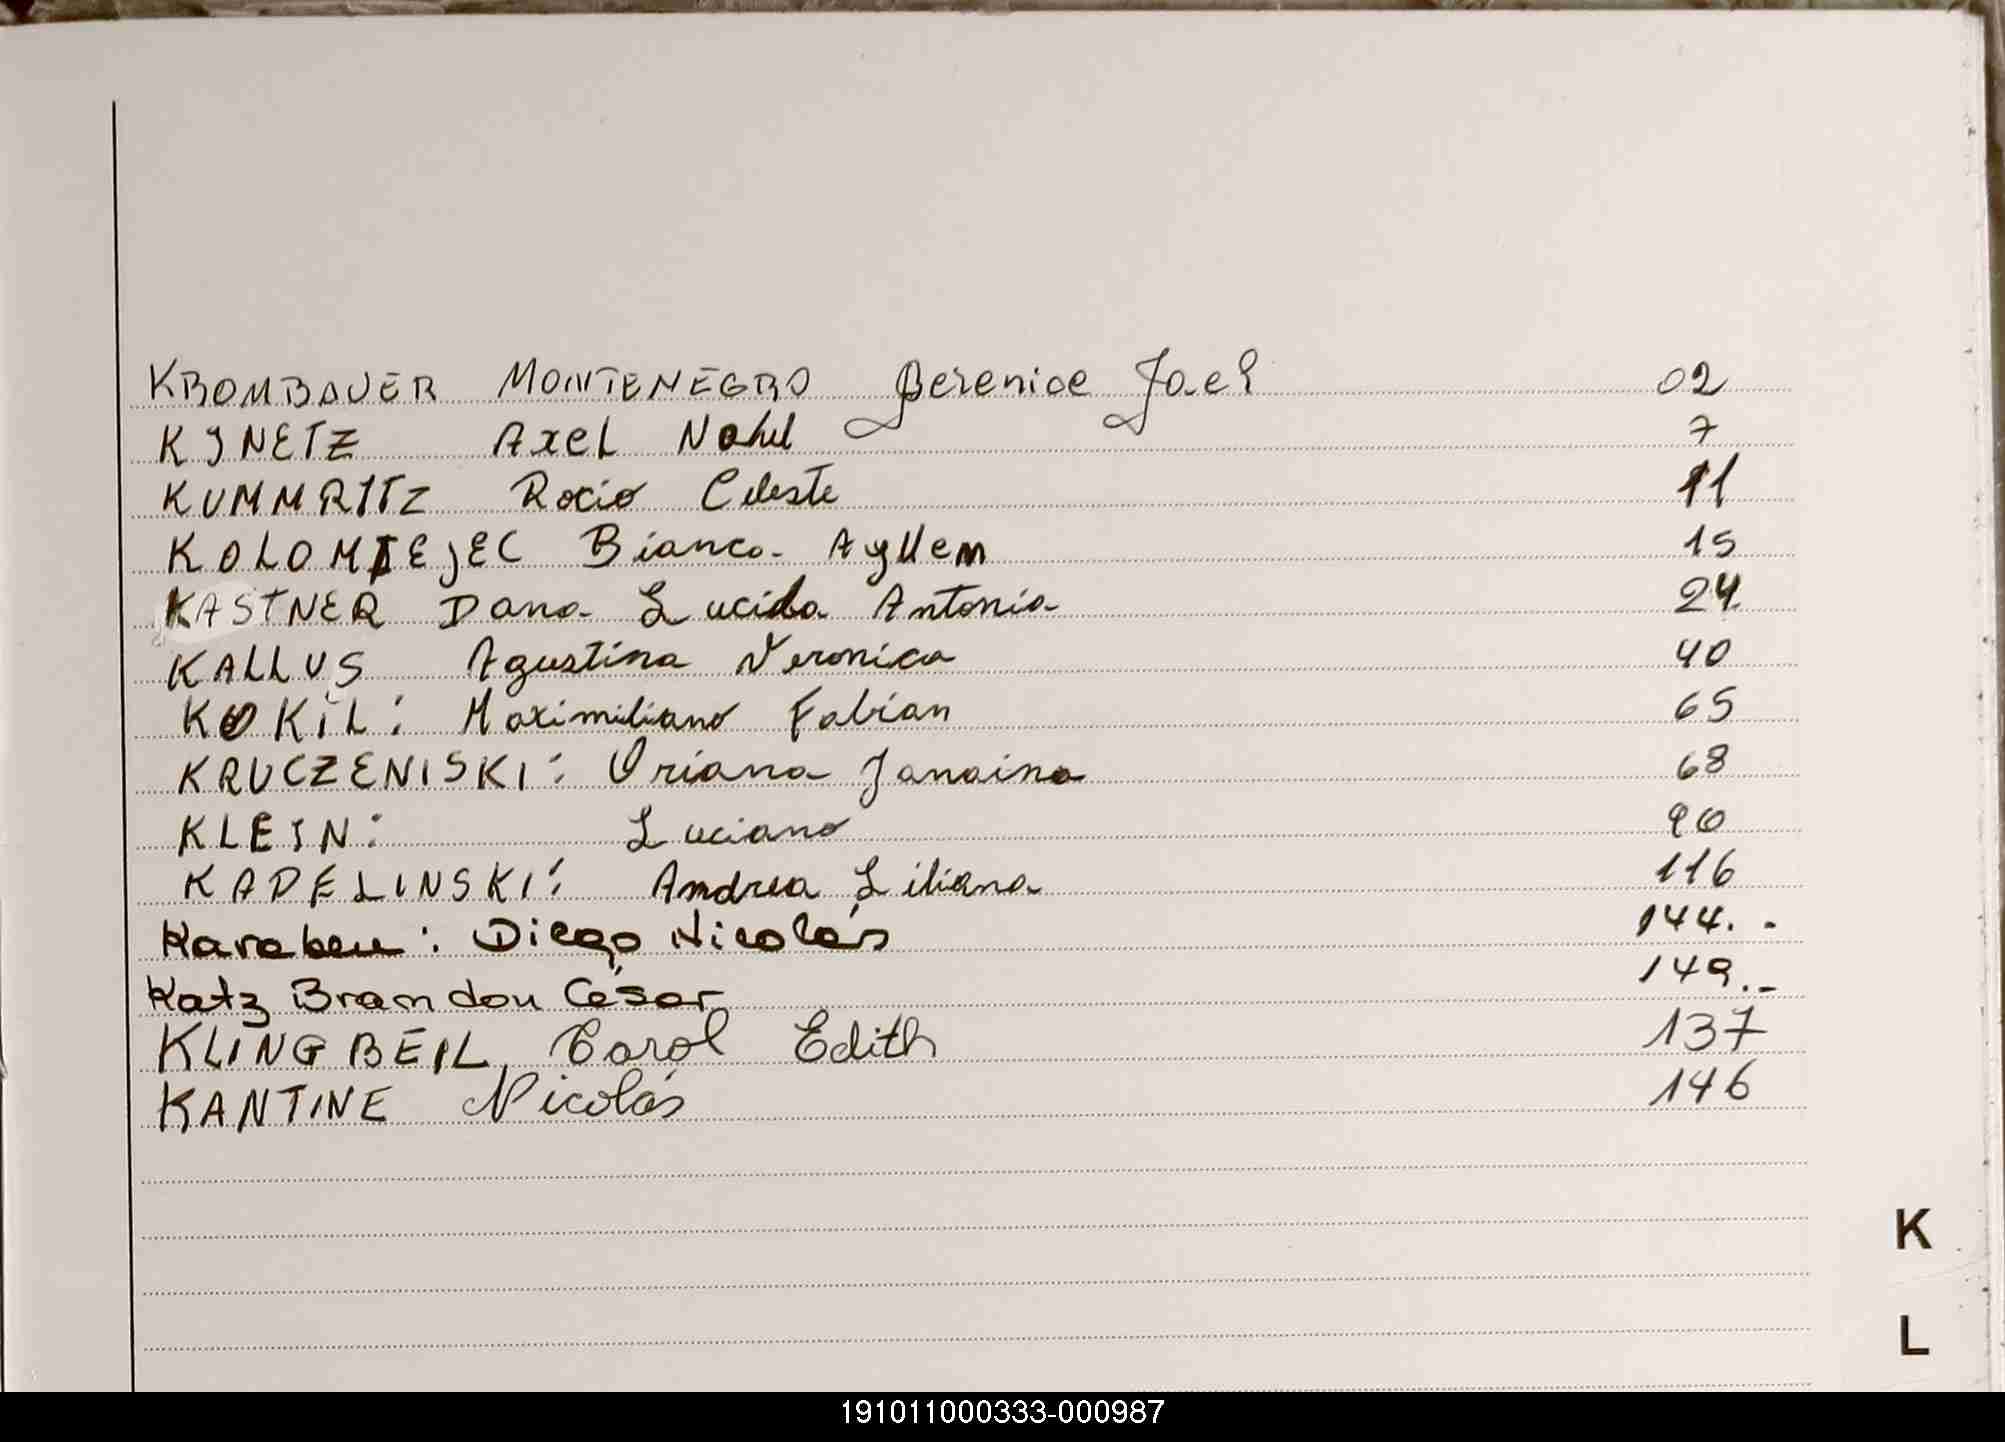 KROMBAUER MONTENEGRO Berenice Jael 02
KINETZ Axel Nahel 7
KUMMRITZ Rocio Celeste 11
KOLOMIEJEC Bianca Ayllem 15
KASTNER Dana Lucida Antonia 24
KALLUS Agustina Veronica 40
KOKIL: Maximiliano Fabian 65
KRUCZENISKI: Oriana Janaina 68
KLEIN: Luciano 90
KADELINSKI: Andrea Liliana 116
Karabeu: Diego Nicolás 144.-
Katz Brandon César 149.-
KLINGBEIL Carol Edith 137
KANTINE Nicolás 146
K
L
191011000333-000987